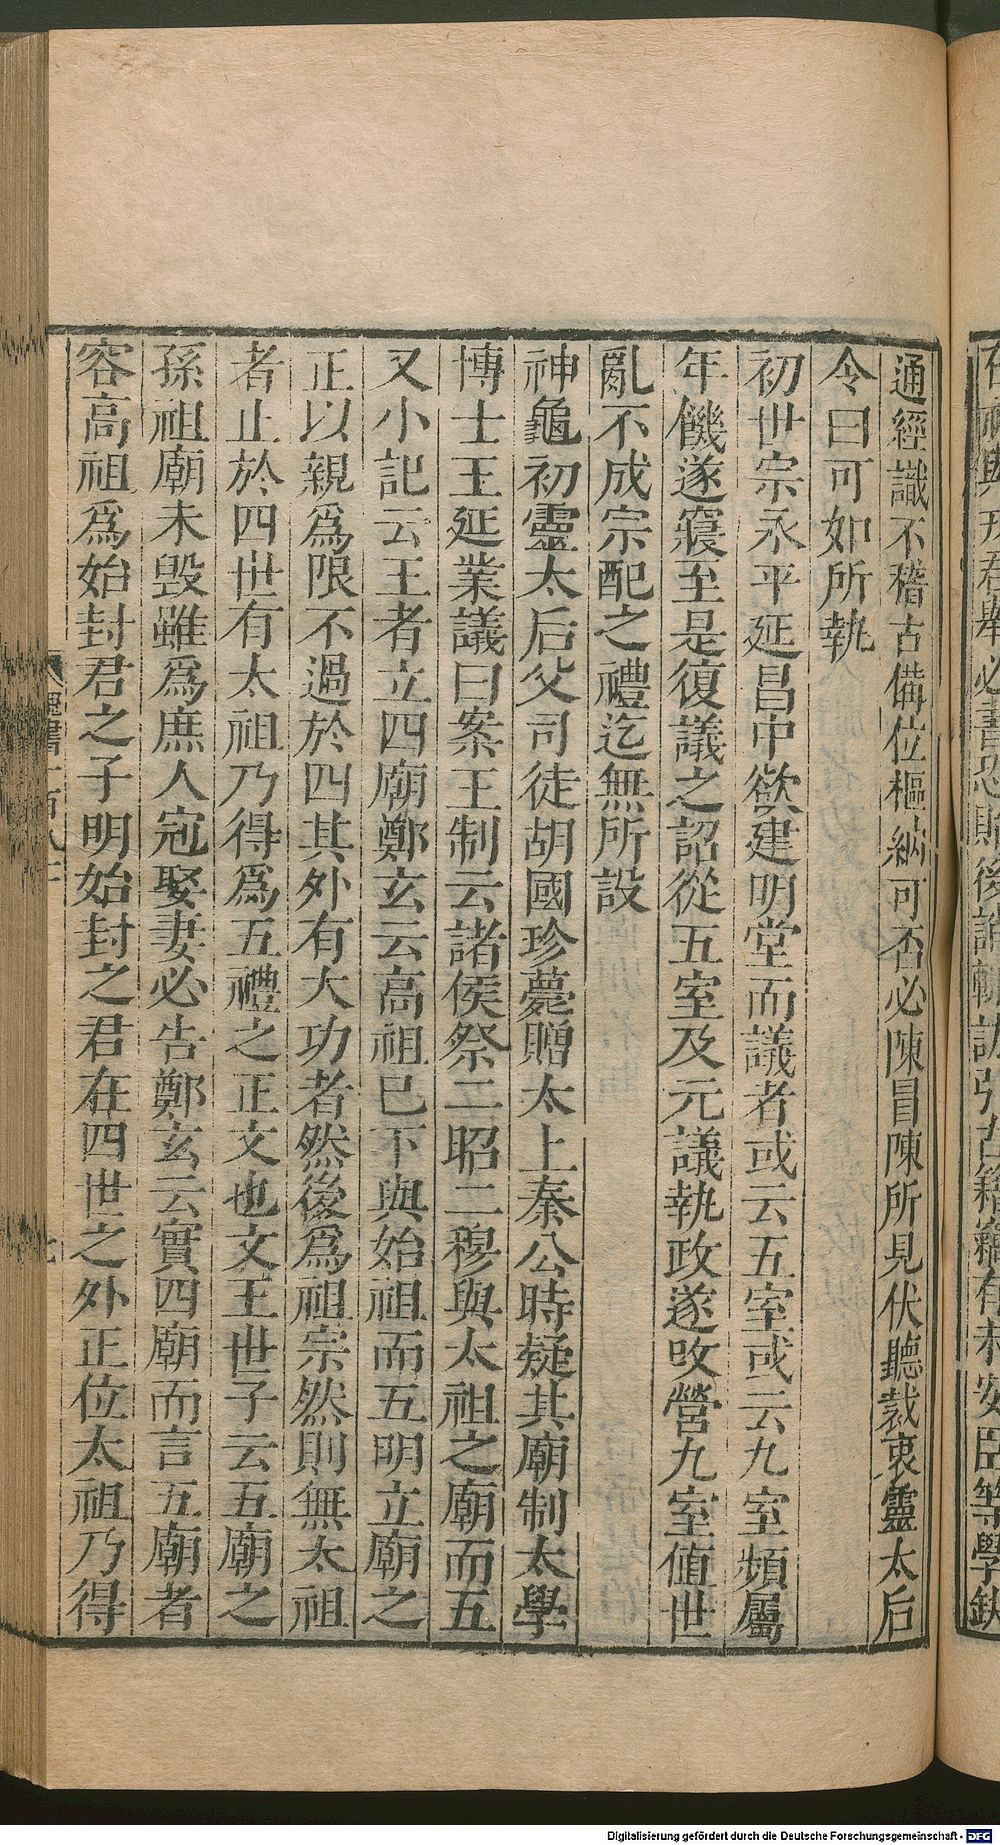 通經識不稽古備位樞納可否必陳冒陳所見伏聽裁衷靈太后
令曰可如所執
初世宗永平延昌中欲建明堂而議者或云五室或云九室頻屬
年饑遂寢至是復議之詔從五室及元議執政遂改營九室值世
亂不成宗配之禮迄無所設
神龜初靈太后父司徒胡國珍薨贈太上秦公時疑其廟制太學
博士王延業議曰案王制云諸侯祭二昭二穆與太祖之廟而五
又小記云王者立四廟鄭玄云高祖已下與始祖而五明立廟之
正以親爲限不過於四其外有大功者然後爲祖宗然則無太祖
者止於四世有太祖乃得爲五禮之正文也文王世子云五廟之
孫祖廟未毀雖爲庶人冠娶妻必告鄭玄云實四廟而言五廟者
容高祖爲始封君之子明始封之君在四世之外正位太祖乃得
Digitalisierung gefördert durch die Deutsche Forschungsgemeinschaft - DFG